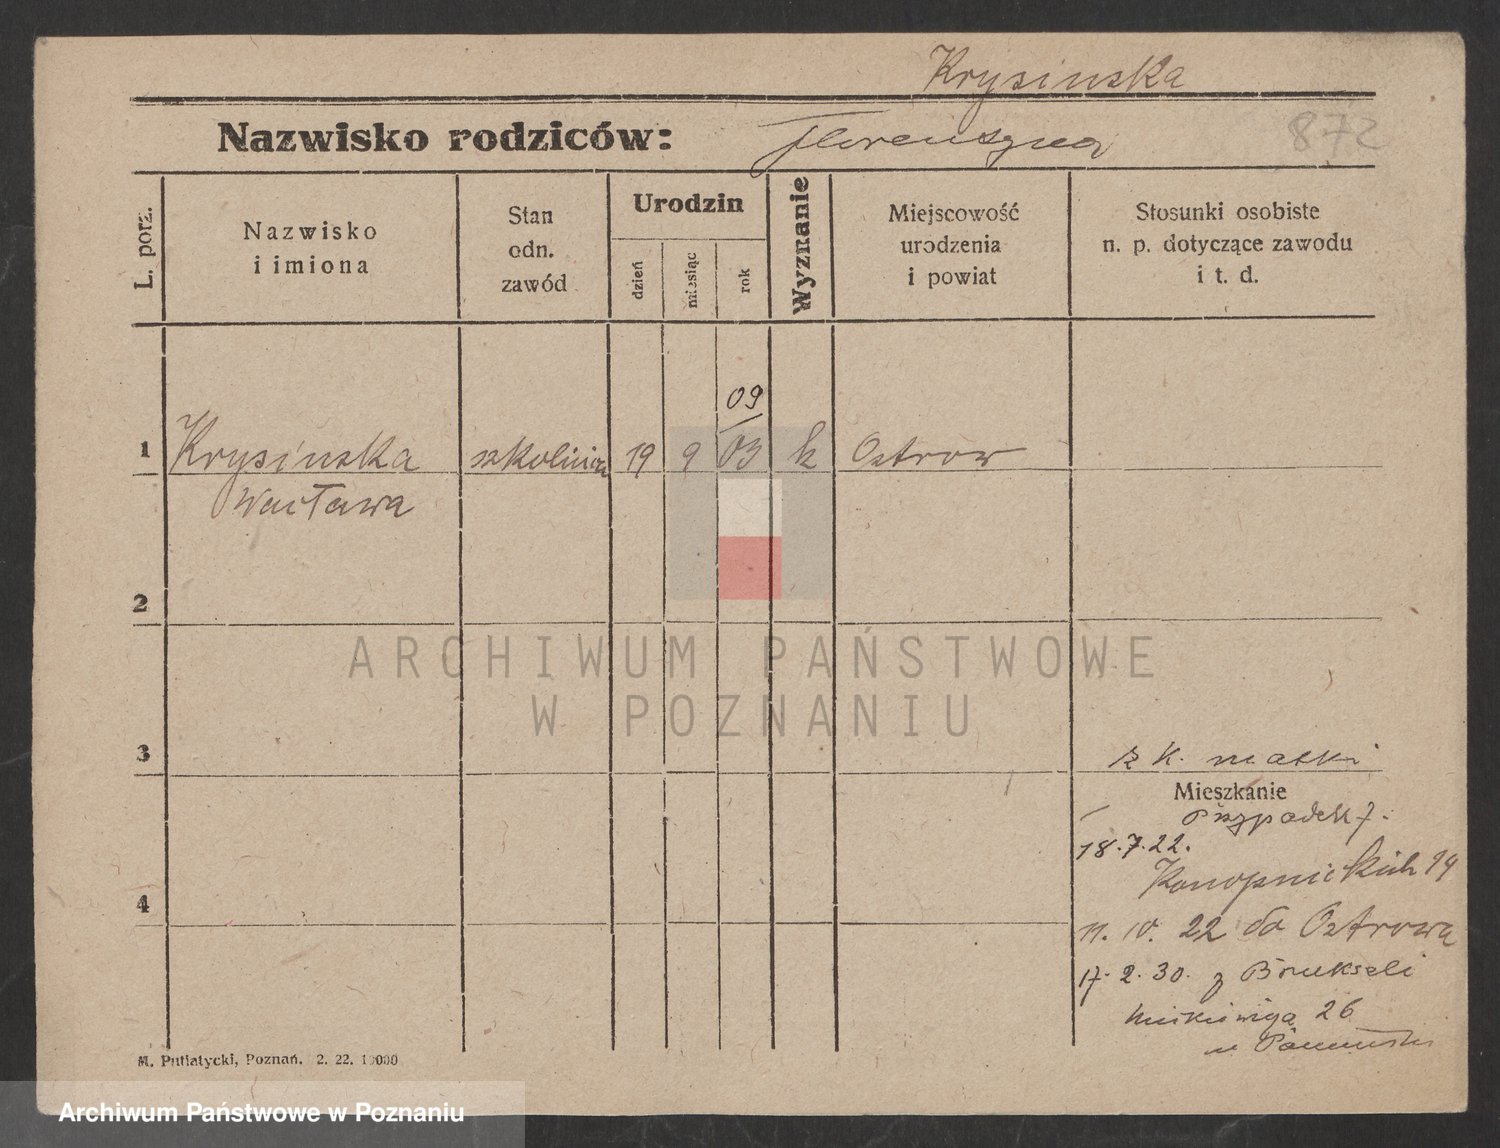 Krysinska
Nazwisko rodziców: Florentyna
872
L. porz.
Nazwisko
i imiona
Stan
odn.
zawód
Urodzin
dzień
miesiąc
rok
Wyznanie
Miejscowość
urodzenia
i powiat
Stosunki osobiste
n. p. dotyczące zawodu
i t. d.
09
1 Krysinska 19 9 03 k Ostrow
Wacława
2
ARCHIWUM PAŃSTWOWE
W POZNANIU
3
z k. matki
Mieszkanie
Przypadek 7.
18.7.22.
4
11. 10. 22 do Ostrowa
17. 2. 30. z Brukseli
26
M. Putiatycki, Poznań. 2. 22. 10000
Archiwum Państwowe w Poznaniu